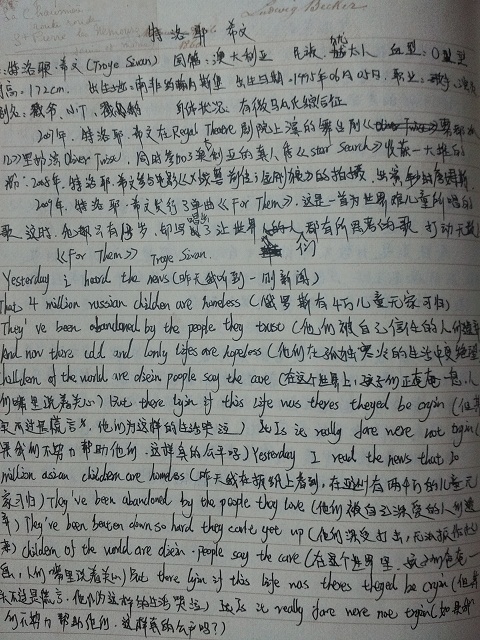 特洛耶 希文
Ludwig Becker
:特洛耶·希文 (Troye Sivan) 国籍:澳大利亚 民族:犹太人 血型:O型
高:172cm. 出生地:南非约翰内斯堡 出生日期:1995年06月05日. 职业:歌手、演员
别名:戳爷、小T、 身体状况:有微马凡氏综合征
2007年. 特洛耶·希文在Regal Theatre 剧院上演的舞台剧
里扮演Oliver Twist,同时参加了澳利亚的真人秀《Star Search》收获一大堆的
2008年. 特洛耶·希文参与电影《X战警前传:金刚狼》的拍摄.
2009年. 特洛耶·希文发行了单曲《For Them》.这是一首为世界难儿童所唱的
歌.这时.他都只有13岁.却写唱出了让世界的人们都有所思考的歌.打动无数
《For Them》 Troye Sivan.
Yesterday i heard the news (昨天我听到一则新闻)
That 4 million russian children are homeless (俄罗斯有4万儿童无家可归)
They've been abandoned by the people they trust (他们被自己信任的人们遗弃
And now there cold and lonly lifes are hopeless (他们在孤独寒冷的生活中绝望
Children of the world are people say the care (在这个世界上,孩子们正奄奄一息,人
们嘴里说着关心) But there lyin if this life was theres theyed be cryin (但其
实不过是谎言.他们为这样的生活哭泣) Is it really fare were not tryin (
果我们不努力帮助他们.这样真的公平吗) Yesterday I read the news that 20
million asian children are homless (昨天我在报纸上看到,在亚洲有两千万的儿童无
家可归) They've been abandoned by the people they love (他们被自己深爱的人们遗
弃) They've been beaten down so hard they can't get up (他们深受打击,无法振作
来) Children of the world are people say the care (在这个世界里.孩子们奄奄一
息,人们嘴里说着关心) But there lyin if this life was theres theyed be cryin (但其
实不过是谎言.他们为这样的生活哭泣) Is it really fare were not tryin (如果我
们不努力帮助他们.这样真的公平吗?)